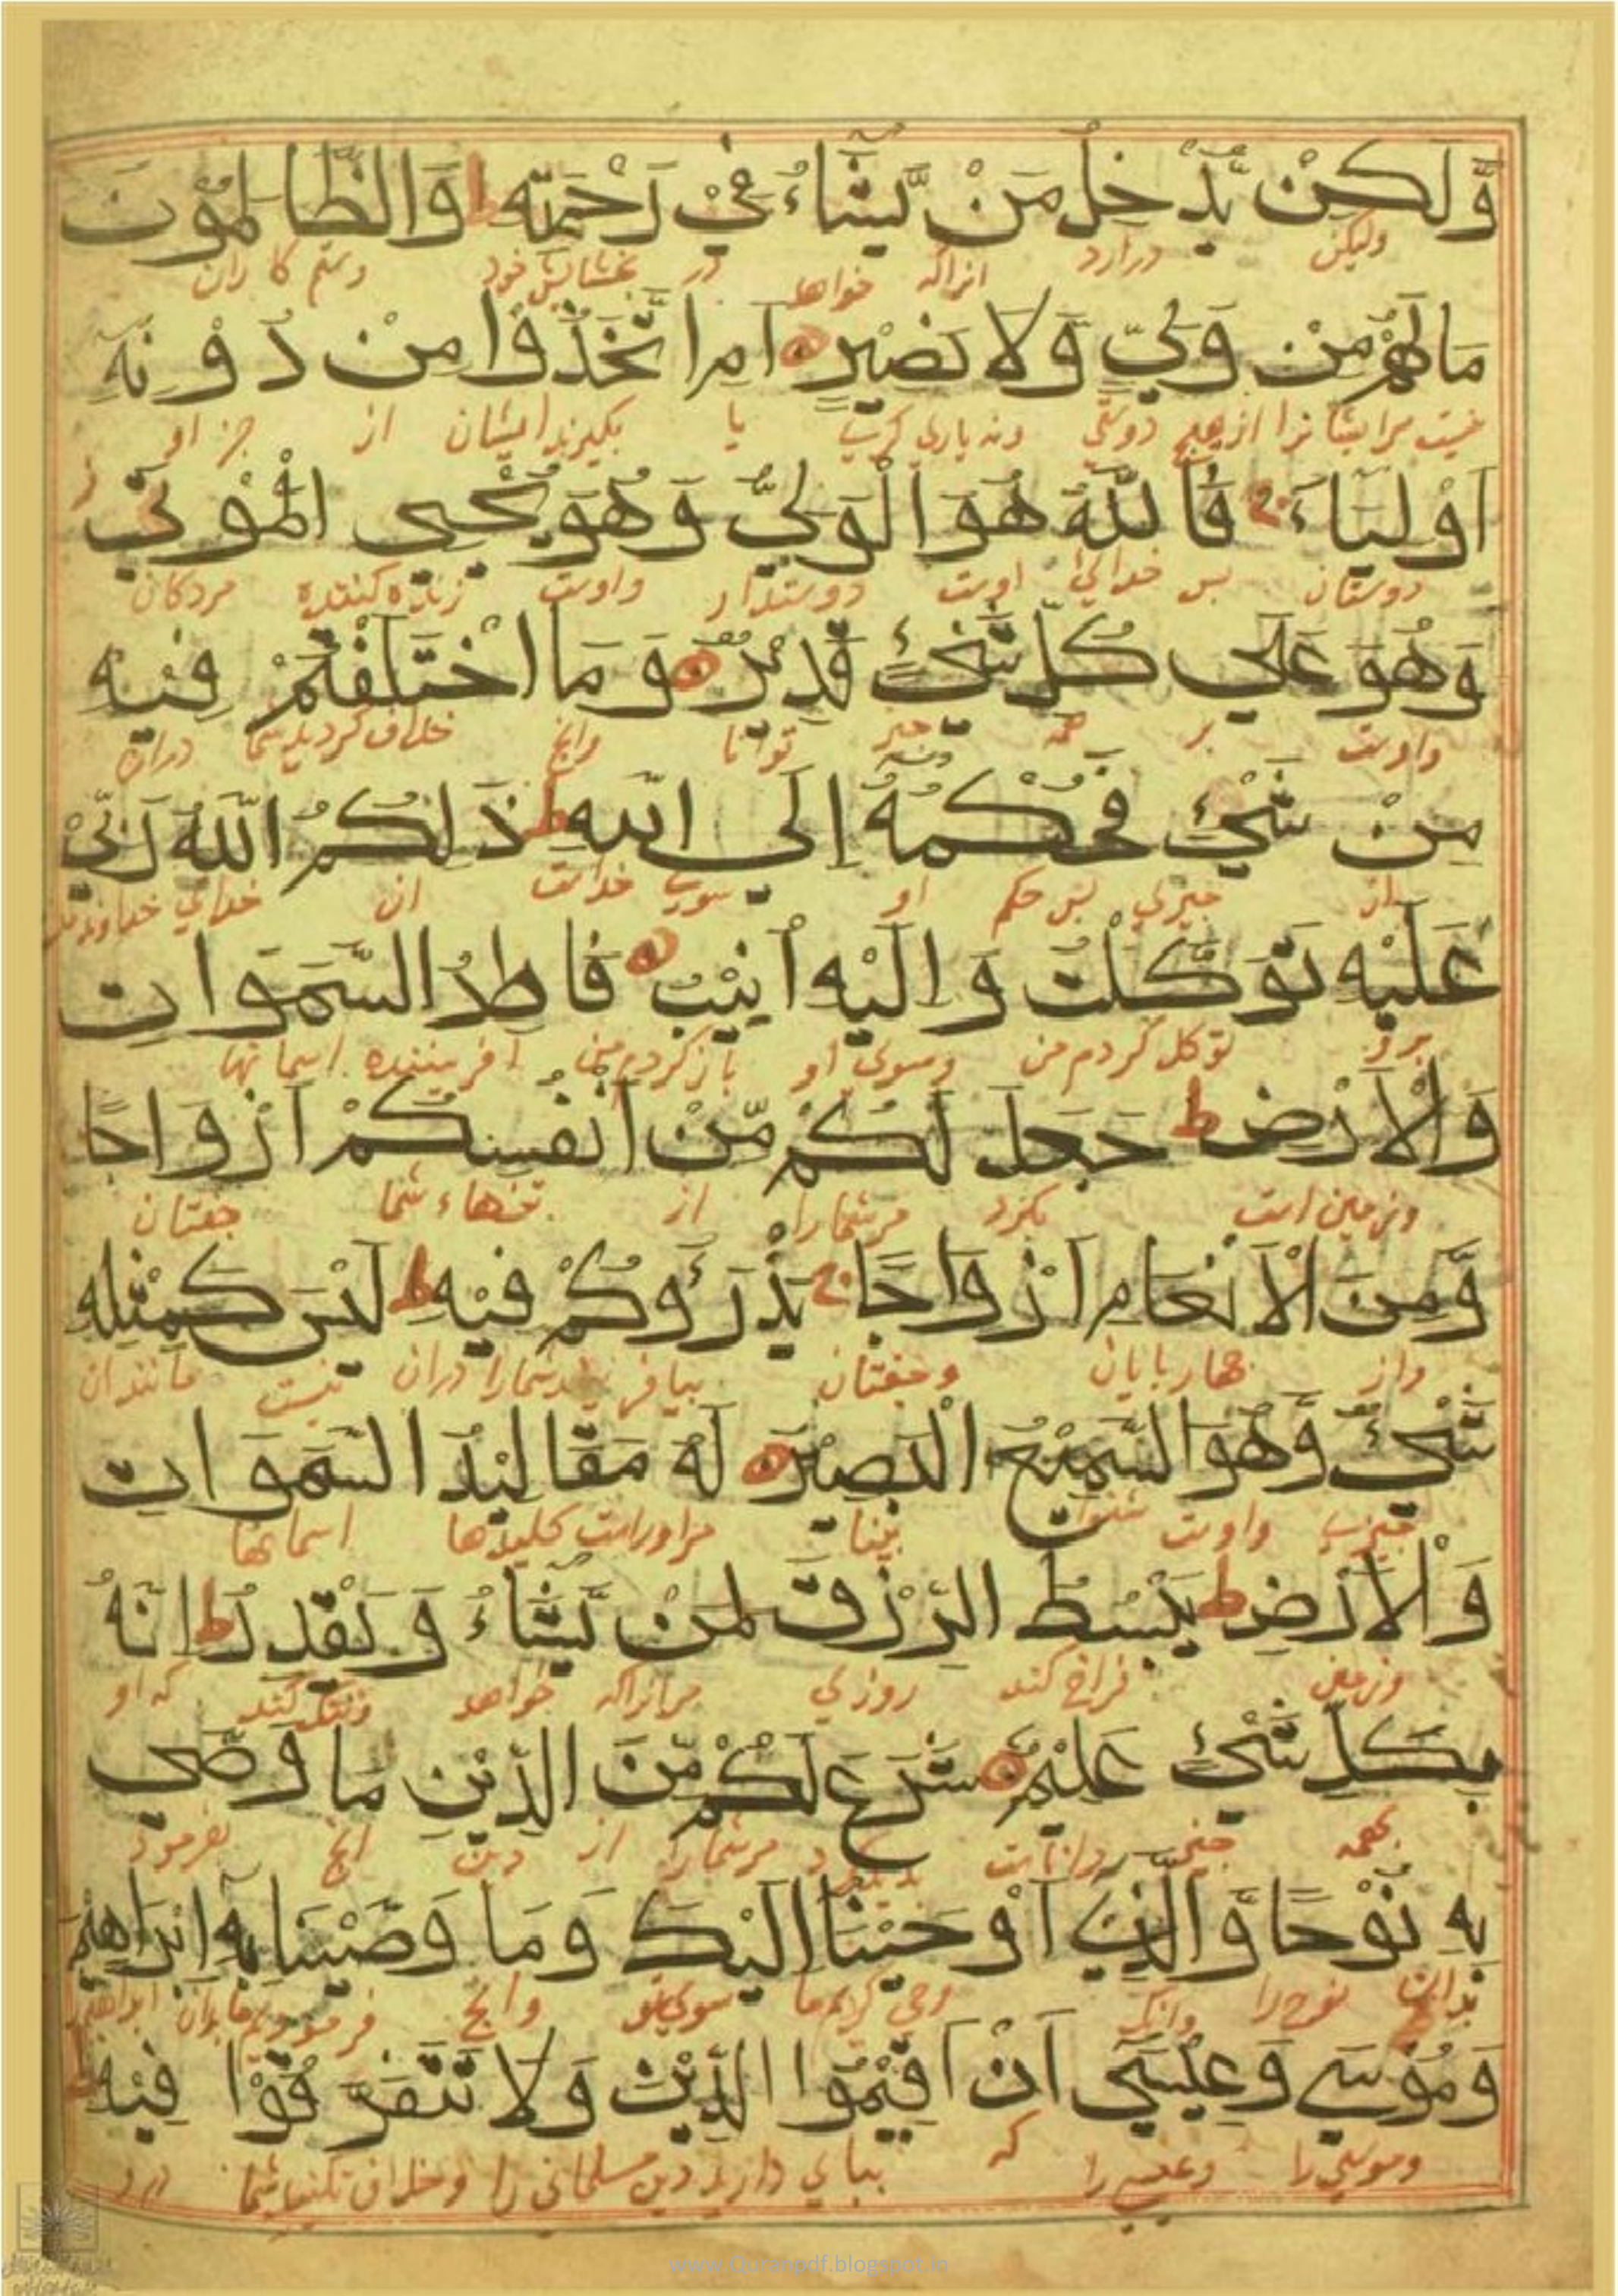 وَّلٰكِنْ يُّدْخِلُ مَنْ يَّشَآءُ فِيْ رَحْمَتِهٖ ط وَالظَّالِمُوْنَ
وليكن درارد انراكه خواهد در بخشايش خود وستم كاران
مَا لَهُمْ مِنْ وَلِيٍّ وَّلَا نَصِيْرٍ اَمِ اتَّخَذُوْا مِنْ دُوْنِهٖٓ
نيست مرايشانرا از هيچ دوستي ونه ياري كري يا بكيرند ايشان از جز او
اَوْلِيَآءَ ج فَاللّٰهُ هُوَ الْوَلِيُّ وَهُوَ يُحْيِي الْمَوْتٰى ز
دوستان بس خداي اوست دوستدار واوست زنده كننده مردكان
وَهُوَ عَلٰى كُلِّ شَيْءٍ قَدِيْرٌ وَمَا اخْتَلَفْتُمْ فِيْهِ
واوست بر همه چيز توانا وانچ خلاف كرديد شما دران
مِنْ شَيْءٍ فَحُكْمُهٗٓ اِلَى اللّٰهِ ط ذٰلِكُمُ اللّٰهُ رَبِّيْ
از چيزي بس حكم او سوي خداست ان خداي خداوند من
عَلَيْهِ تَوَكَّلْتُ وَاِلَيْهِ اُنِيْبُ فَاطِرُ السَّمٰوَاتِ
برو توكل كردم من وسوي او باز كردم من افريننده اسمانها
وَالْاَرْضِ ط جَعَلَ لَكُمْ مِّنْ اَنْفُسِكُمْ اَزْوَاجًا
وزمين است بكرد مرشمارا از تنهاء شما جفتان
وَّمِنَ الْاَنْعَامِ اَزْوَاجًا ج يَذْرَؤُكُمْ فِيْهِ ط لَيْسَ كَمِثْلِهٖ
واز چهاربايان وجفتان بيافريند شمارا دران نيست مانند ان
شَيْءٌ وَّهُوَ السَّمِيْعُ الْبَصِيْرُ لَهٗ مَقَالِيْدُ السَّمٰوَاتِ
چيزي واوست شنوا بينا مراوراست كليدها اسمانها
وَالْاَرْضِ ط يَبْسُطُ الرِّزْقَ لِمَنْ يَّشَآءُ وَيَقْدِرُ ط اِنَّهٗ
وزمين فراخ كند روزي مرانراكه خواهد وتنك كند كه او
بِكُلِّ شَيْءٍ عَلِيْمٌ شَرَعَ لَكُمْ مِّنَ الدِّيْنِ مَا وَصّٰى
بهمه چيز داناست مرشمارا از دين انچ بفرمود
بِهٖ نُوْحًا وَّالَّذِيْٓ اَوْحَيْنَآ اِلَيْكَ وَمَا وَصَّيْنَا بِهٖٓ اِبْرَاهِيْمَ
بدان نوح را وانك وحي كرديم ما سوي تو وانچ فرموديم ما بدان ابراهيم را
وَمُوْسٰى وَعِيْسٰٓى اَنْ اَقِيْمُوا الدِّيْنَ وَلَا تَتَفَرَّقُوْا فِيْهِ ط
وموسي را وعيسي را كه بباي داريد دين مسلماني را وخلاف نكنيد شما درو
www.Quranpdf.blogspot.in